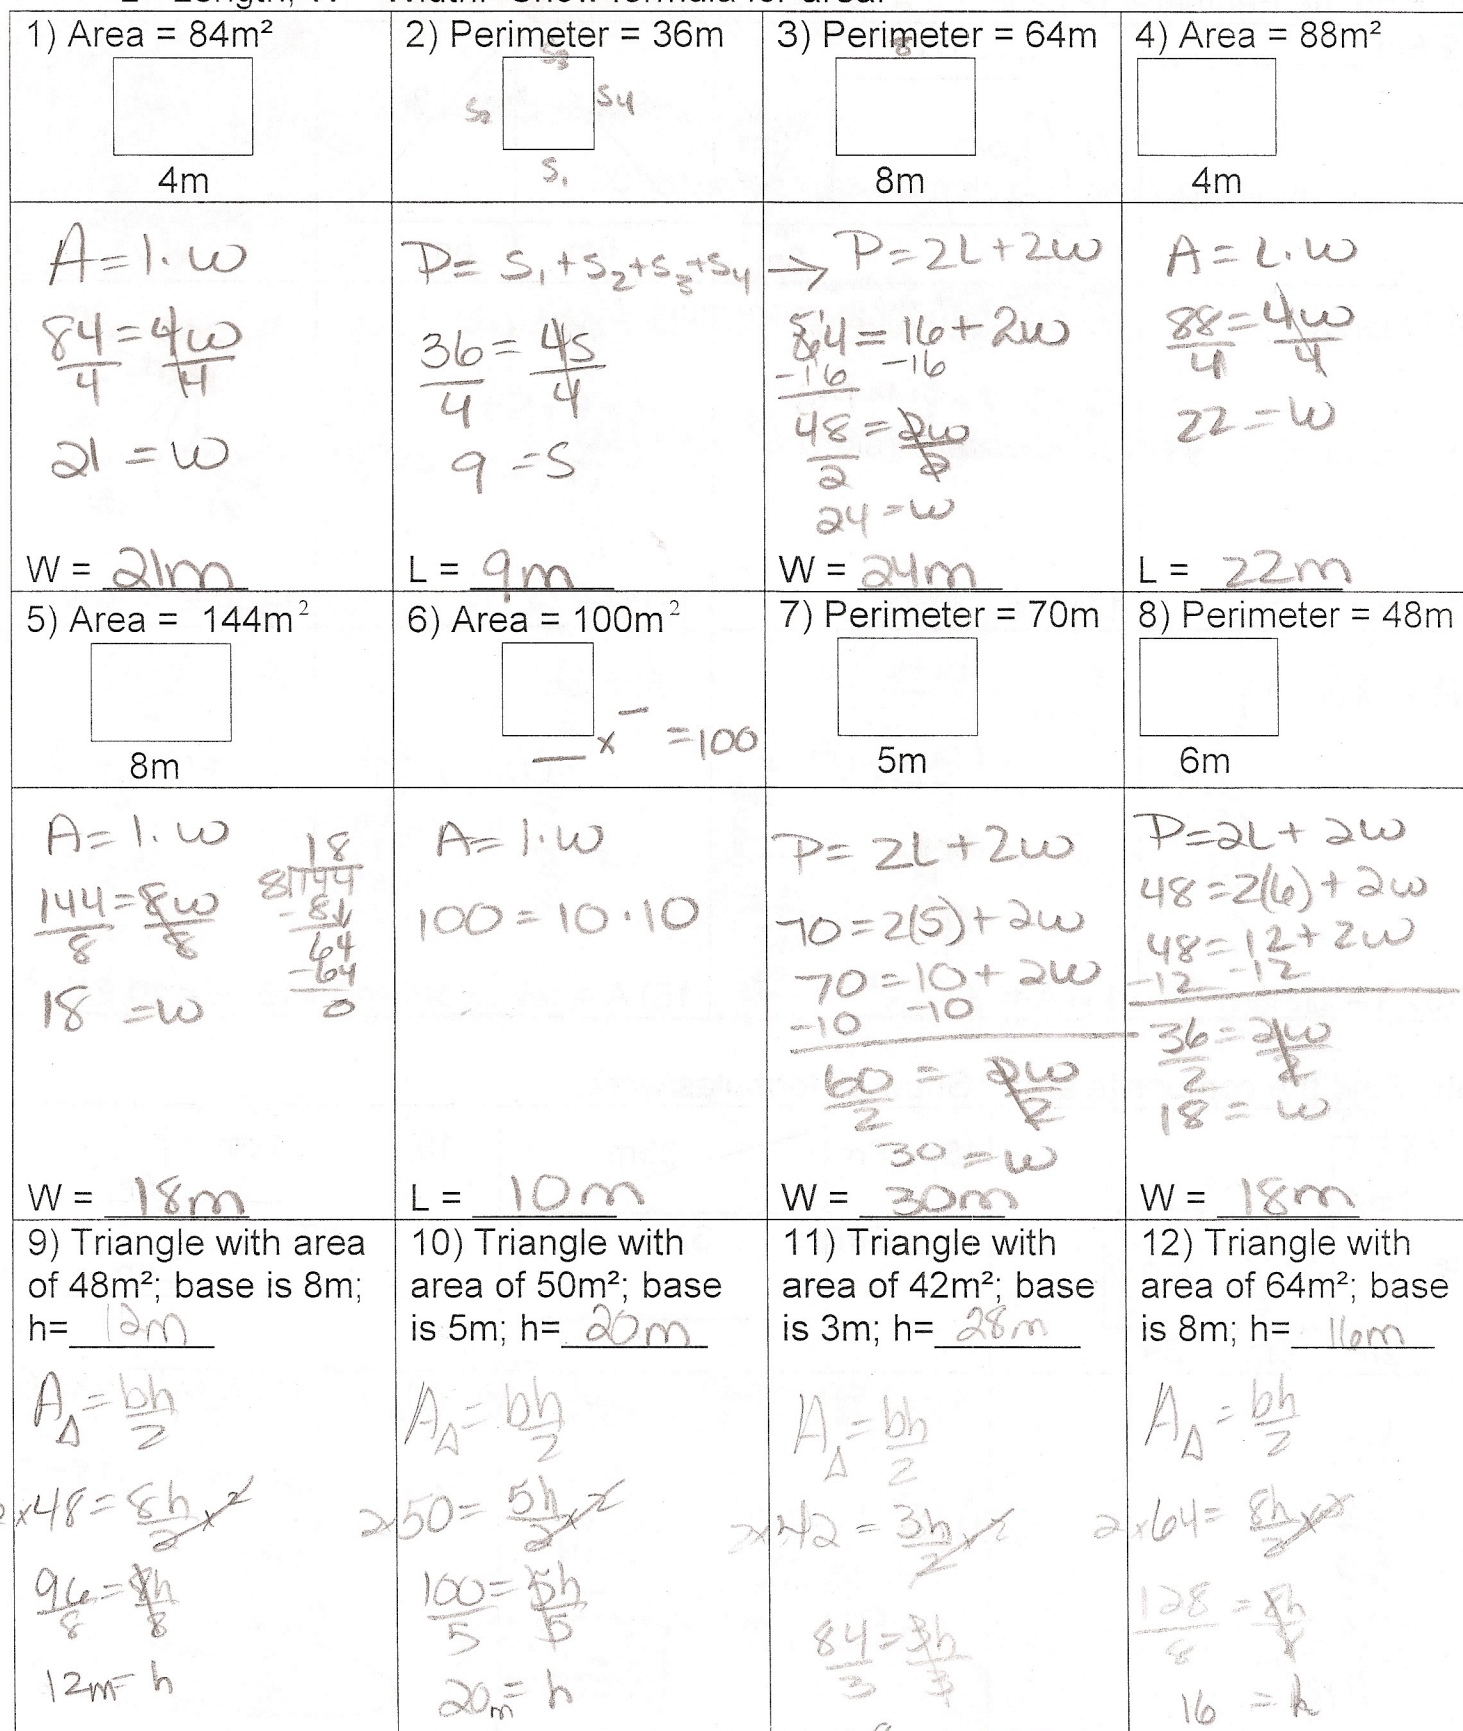 1) Area = 84m²
4m
A = l · w
84 = 4w
4 4
21 = w
W = 21m
2) Perimeter = 36m
S3
S2
S4
S1
P = S1 + S2 + S3 + S4
36 = 4s
4 4
9 = S
L = 9m
3) Perimeter = 64m
8
8m
→ P = 2L + 2w
64 = 16 + 2w
-16 -16
48 = 2w
2 2
24 = w
W = 24m
4) Area = 88m²
4m
A = L · w
88 = 4w
4 4
22 = w
L = 22m
5) Area = 144m²
8m
A = l · w
144 = 8w
8 8
18 = w
18
8)144
-8↓
64
-64
0
W = 18m
6) Area = 100m²
_ x _ = 100
A = l · w
100 = 10 · 10
L = 10m
7) Perimeter = 70m
5m
P = 2L + 2w
70 = 2(5) + 2w
70 = 10 + 2w
-10 -10
60 = 2w
2 2
30 = w
W = 30m
8) Perimeter = 48m
6m
P = 2L + 2w
48 = 2(6) + 2w
48 = 12 + 2w
-12 -12
36 = 2w
2 2
18 = w
W = 18m
9) Triangle with area
of 48m²; base is 8m;
h= 12m
A△ = bh
2
x48 = 8h x 2
2
96 = 8h
8 8
12m = h
10) Triangle with
area of 50m²; base
is 5m; h= 20m
A△ = bh
2
2x50 = 5h x 2
2
100 = 5h
5 5
20m = h
11) Triangle with
area of 42m²; base
is 3m; h= 28m
A△ = bh
2
2x42 = 3h x 2
2
84 = 3h
3 3
12) Triangle with
area of 64m²; base
is 8m; h= 16m
A△ = bh
2
2x64 = 8h x 2
2
128 = 8h
8 8
16 = h